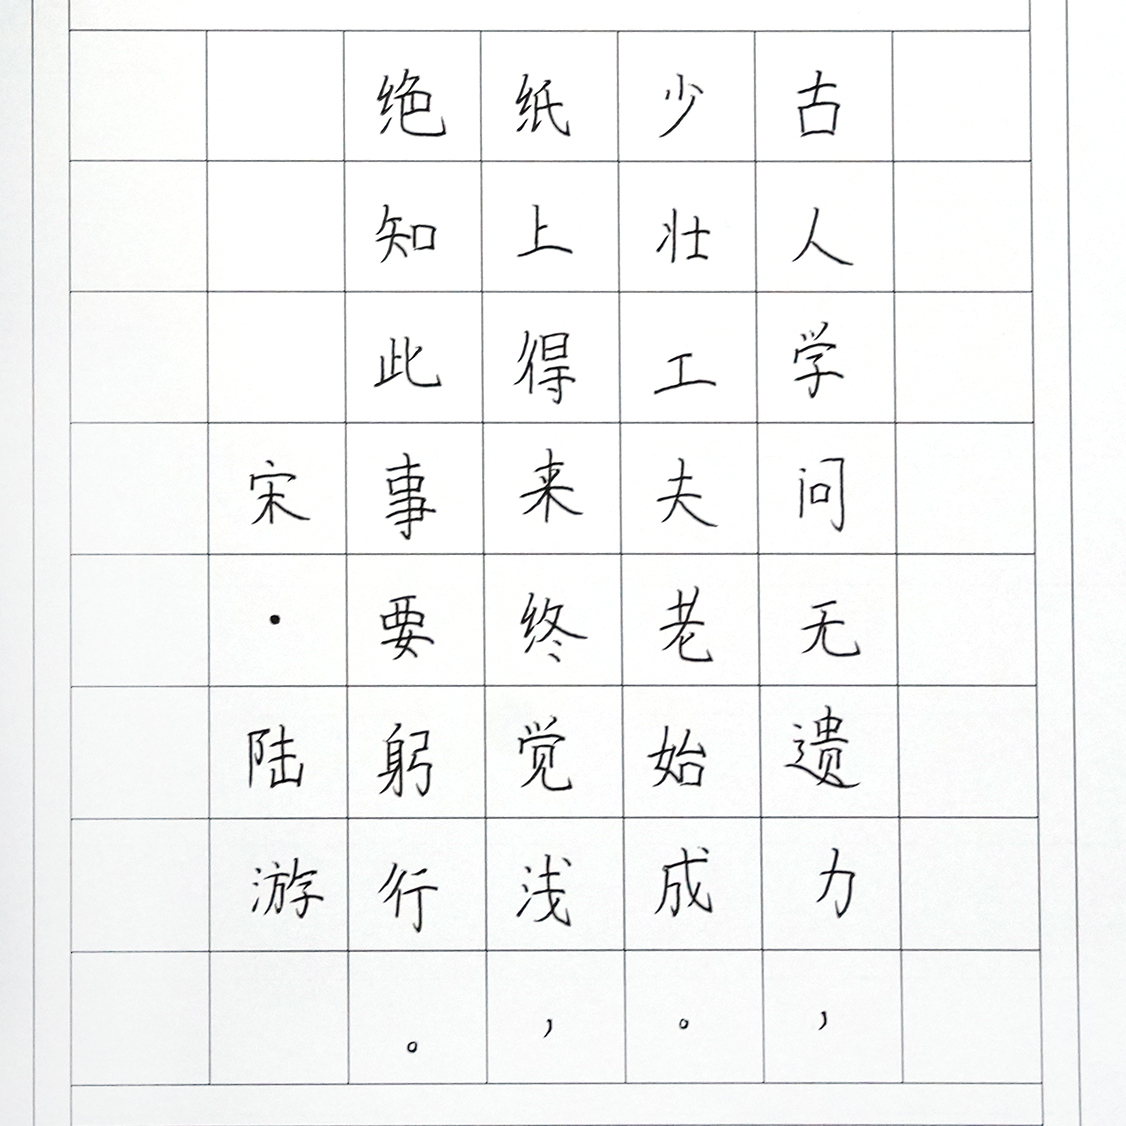 古人学问无遗力，
少壮工夫老始成。
纸上得来终觉浅，
绝知此事要躬行。
宋·陆游